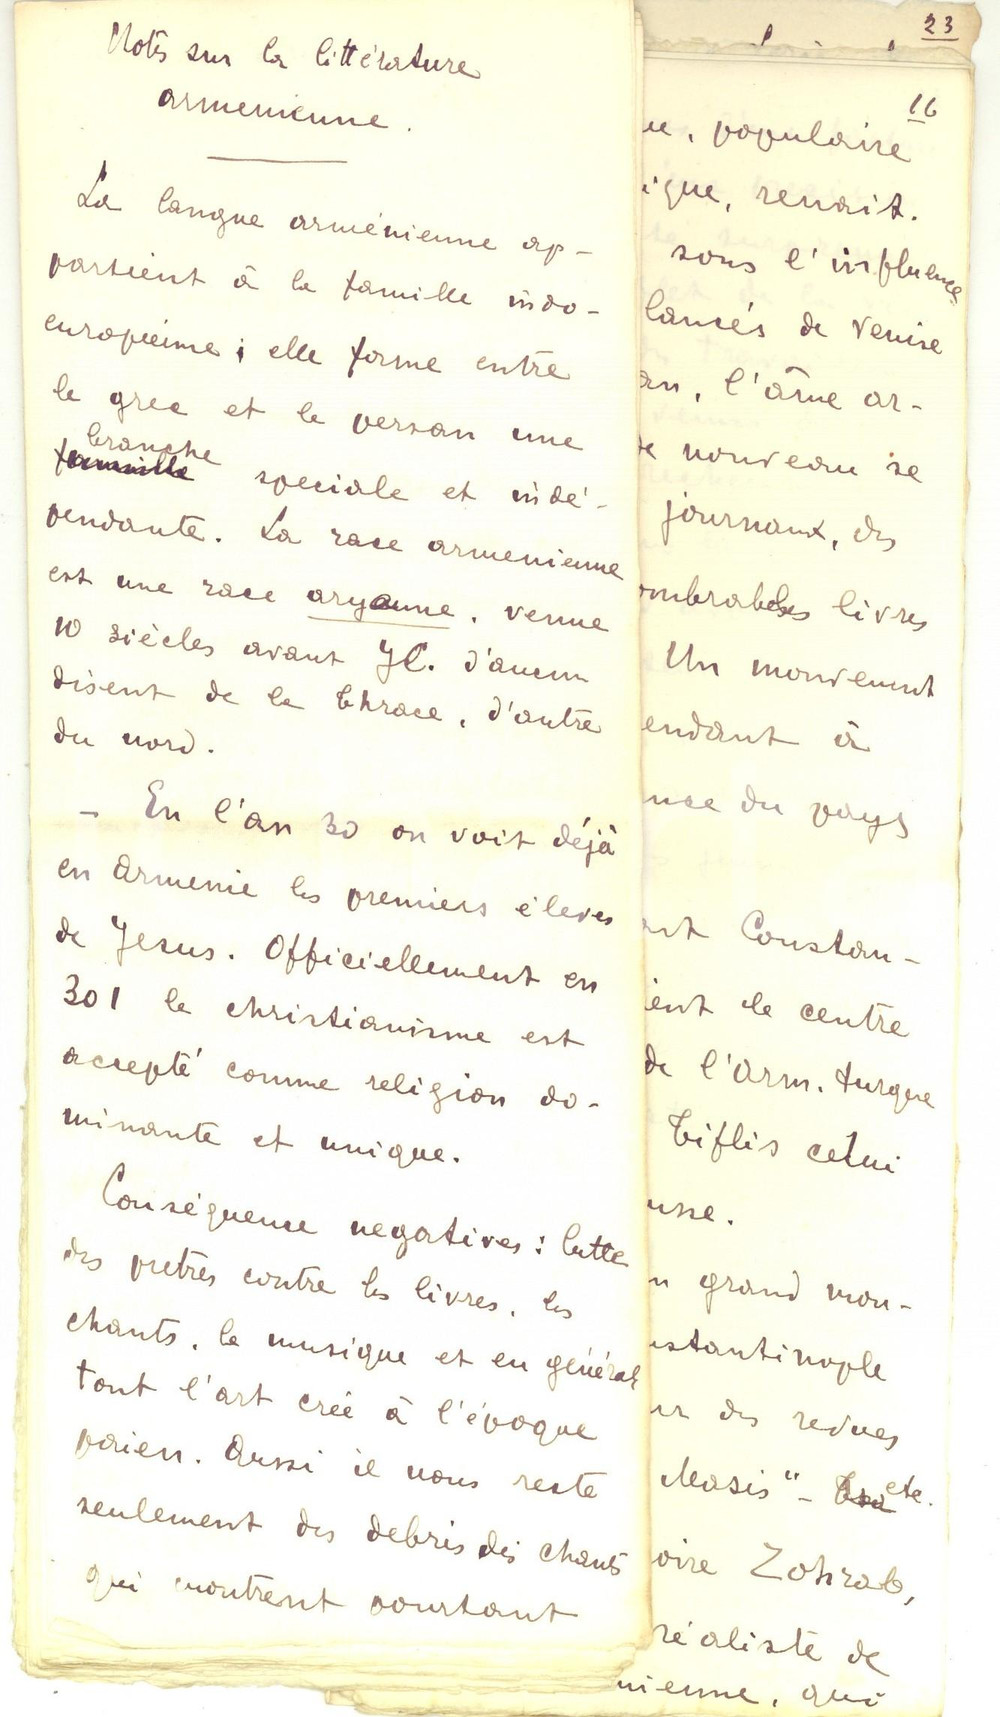 Notes sur la littérature
armenienne.
La langue arménienne ap-
partient à la famille indo-
européenne; elle forme entre
le grec et le persan une
branche
famille speciale et indé-
pendante. La race armenienne
est une race aryenne, venue
10 siècles avant JC. d'aucun
disent de la Thrace, d'autre
du nord.
— En l'an 30 on voit déjà
en Armenie les premiers élèves
de Jesus. Officiellement en
301 le christianisme est
accepté comme religion do-
minante et unique.
Conséquence negatives: lutte
des pretres contre les livres, les
chants, la musique et en général
tout l'art créé à l'époque
paien. Aussi il nous reste
seulement des debris des chants
qui montrent pourtant
23
16
ue, populaire
ique, renait.
sous l'influence
lancés de Venise
an, l'âme ar-
de nouveau se
journaux, des
ombrables livres
Un mouvement
endant à
nce du pays
Constan-
ient le centre
de l'Arm. turque
Tiflis celui
usse.
n grand mou-
nstantinople
ur des revues
Masis" - etc.
oire Zohrab,
réaliste de
nienne, qui